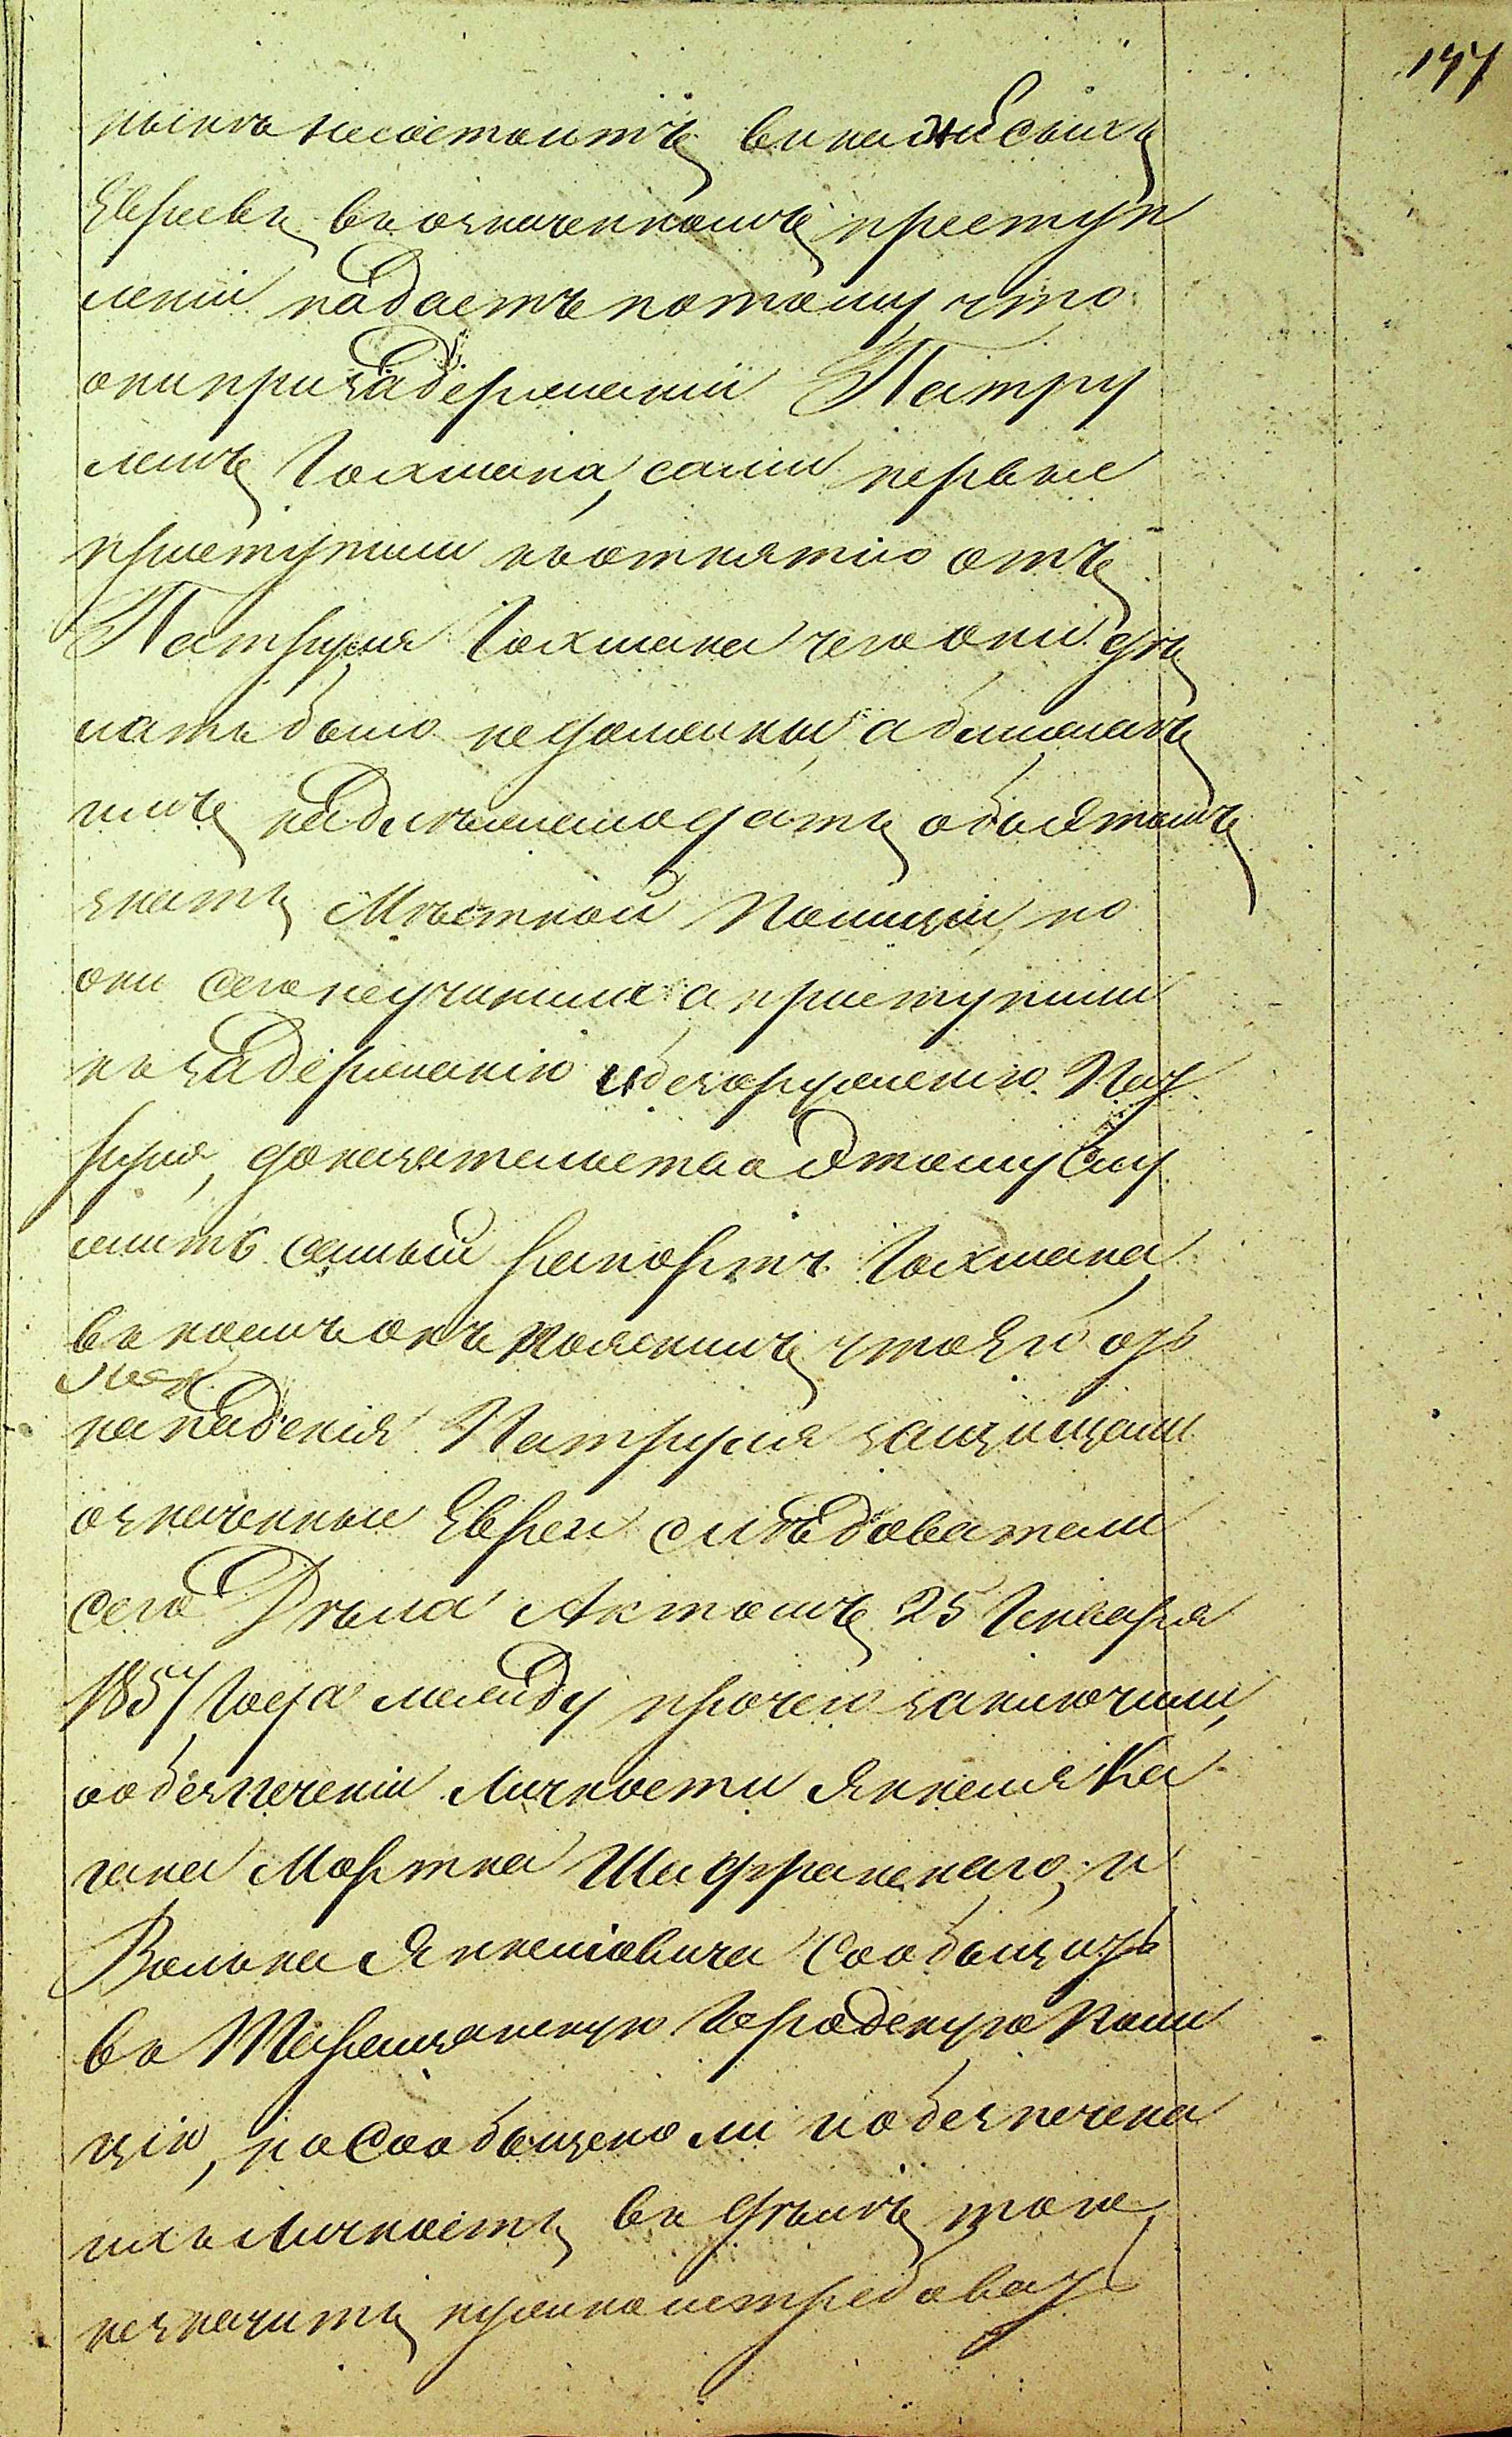 147
несостоитъ
Евреевъ въ означенномъ преступ
леніи падаетъ потому что
они при задержаніи Патру
лемъ Гохмана, сами первые
приступили къ отнятію отъ
Патруля Гохмана чего они дѣ
лать было не должны, а
имъ надлежало дать объ этомъ
знать Мѣстной Полиціи, но
они сего не учинили а приступили
къ задержанію и обезоруженію Пат
руля, доказательство этому слу
житъ самый рапортъ Гохмана,
въ комъ онъ пояснилъ что его отъ
нападенія Патруля защищали
означенные Евреи слѣдователи
сего Дѣла Актомъ 25 Генваря
1857 Года между прочего заключили,
о обезпеченіи личности Янкеля Ка
гана Мортка Шаффранскаго, и
Волька Янкеліовича сообщить
въ Тыращанскую Городскую Поли
цію, но сообщено ли и обезпечена
ихъ личность въ дѣлѣ того
незначитъ нужно истребоват